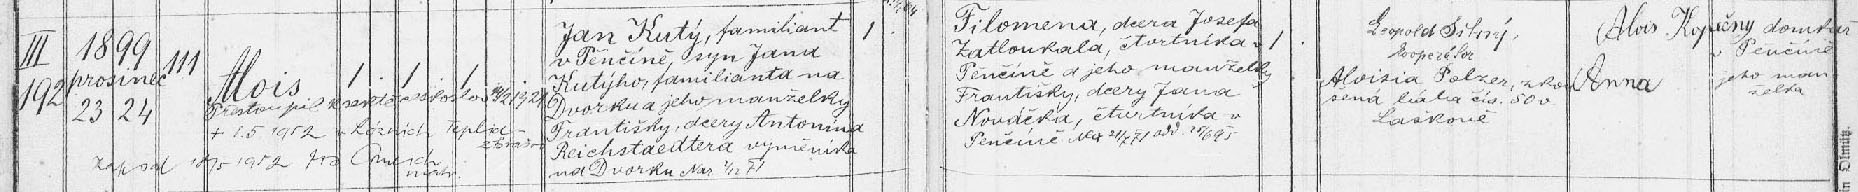 III
192
1899
prosinec
23 24
111
Alois
1. 1. 1
Přestoupil k
+ 1.5 1952 v Lázních Teplice
1952
Jan Kutý, familiant
v Pěnčíně, syn Jana
Kutýho, familianta na
Dvorku a jeho manželky
Františky, dcery Antonína
Reichstaedtera výměníka
na Dvorku Nar.
1.
Filomena, dcera Josefa
Zatloukala, čtvrtníka v
Pěnčíně a jeho manželky
Františky, dcery Jana
Nováčka, čtvrtníka v
Pěnčíně Nar.
1.
Leopold
kooperátor
Aloisia Polzer, zkou
šená bába čís. 50 v
Laskově
Alois Kopečný domkář
v Pěnčíně
Anna jeho man
želka
in Olmütz.